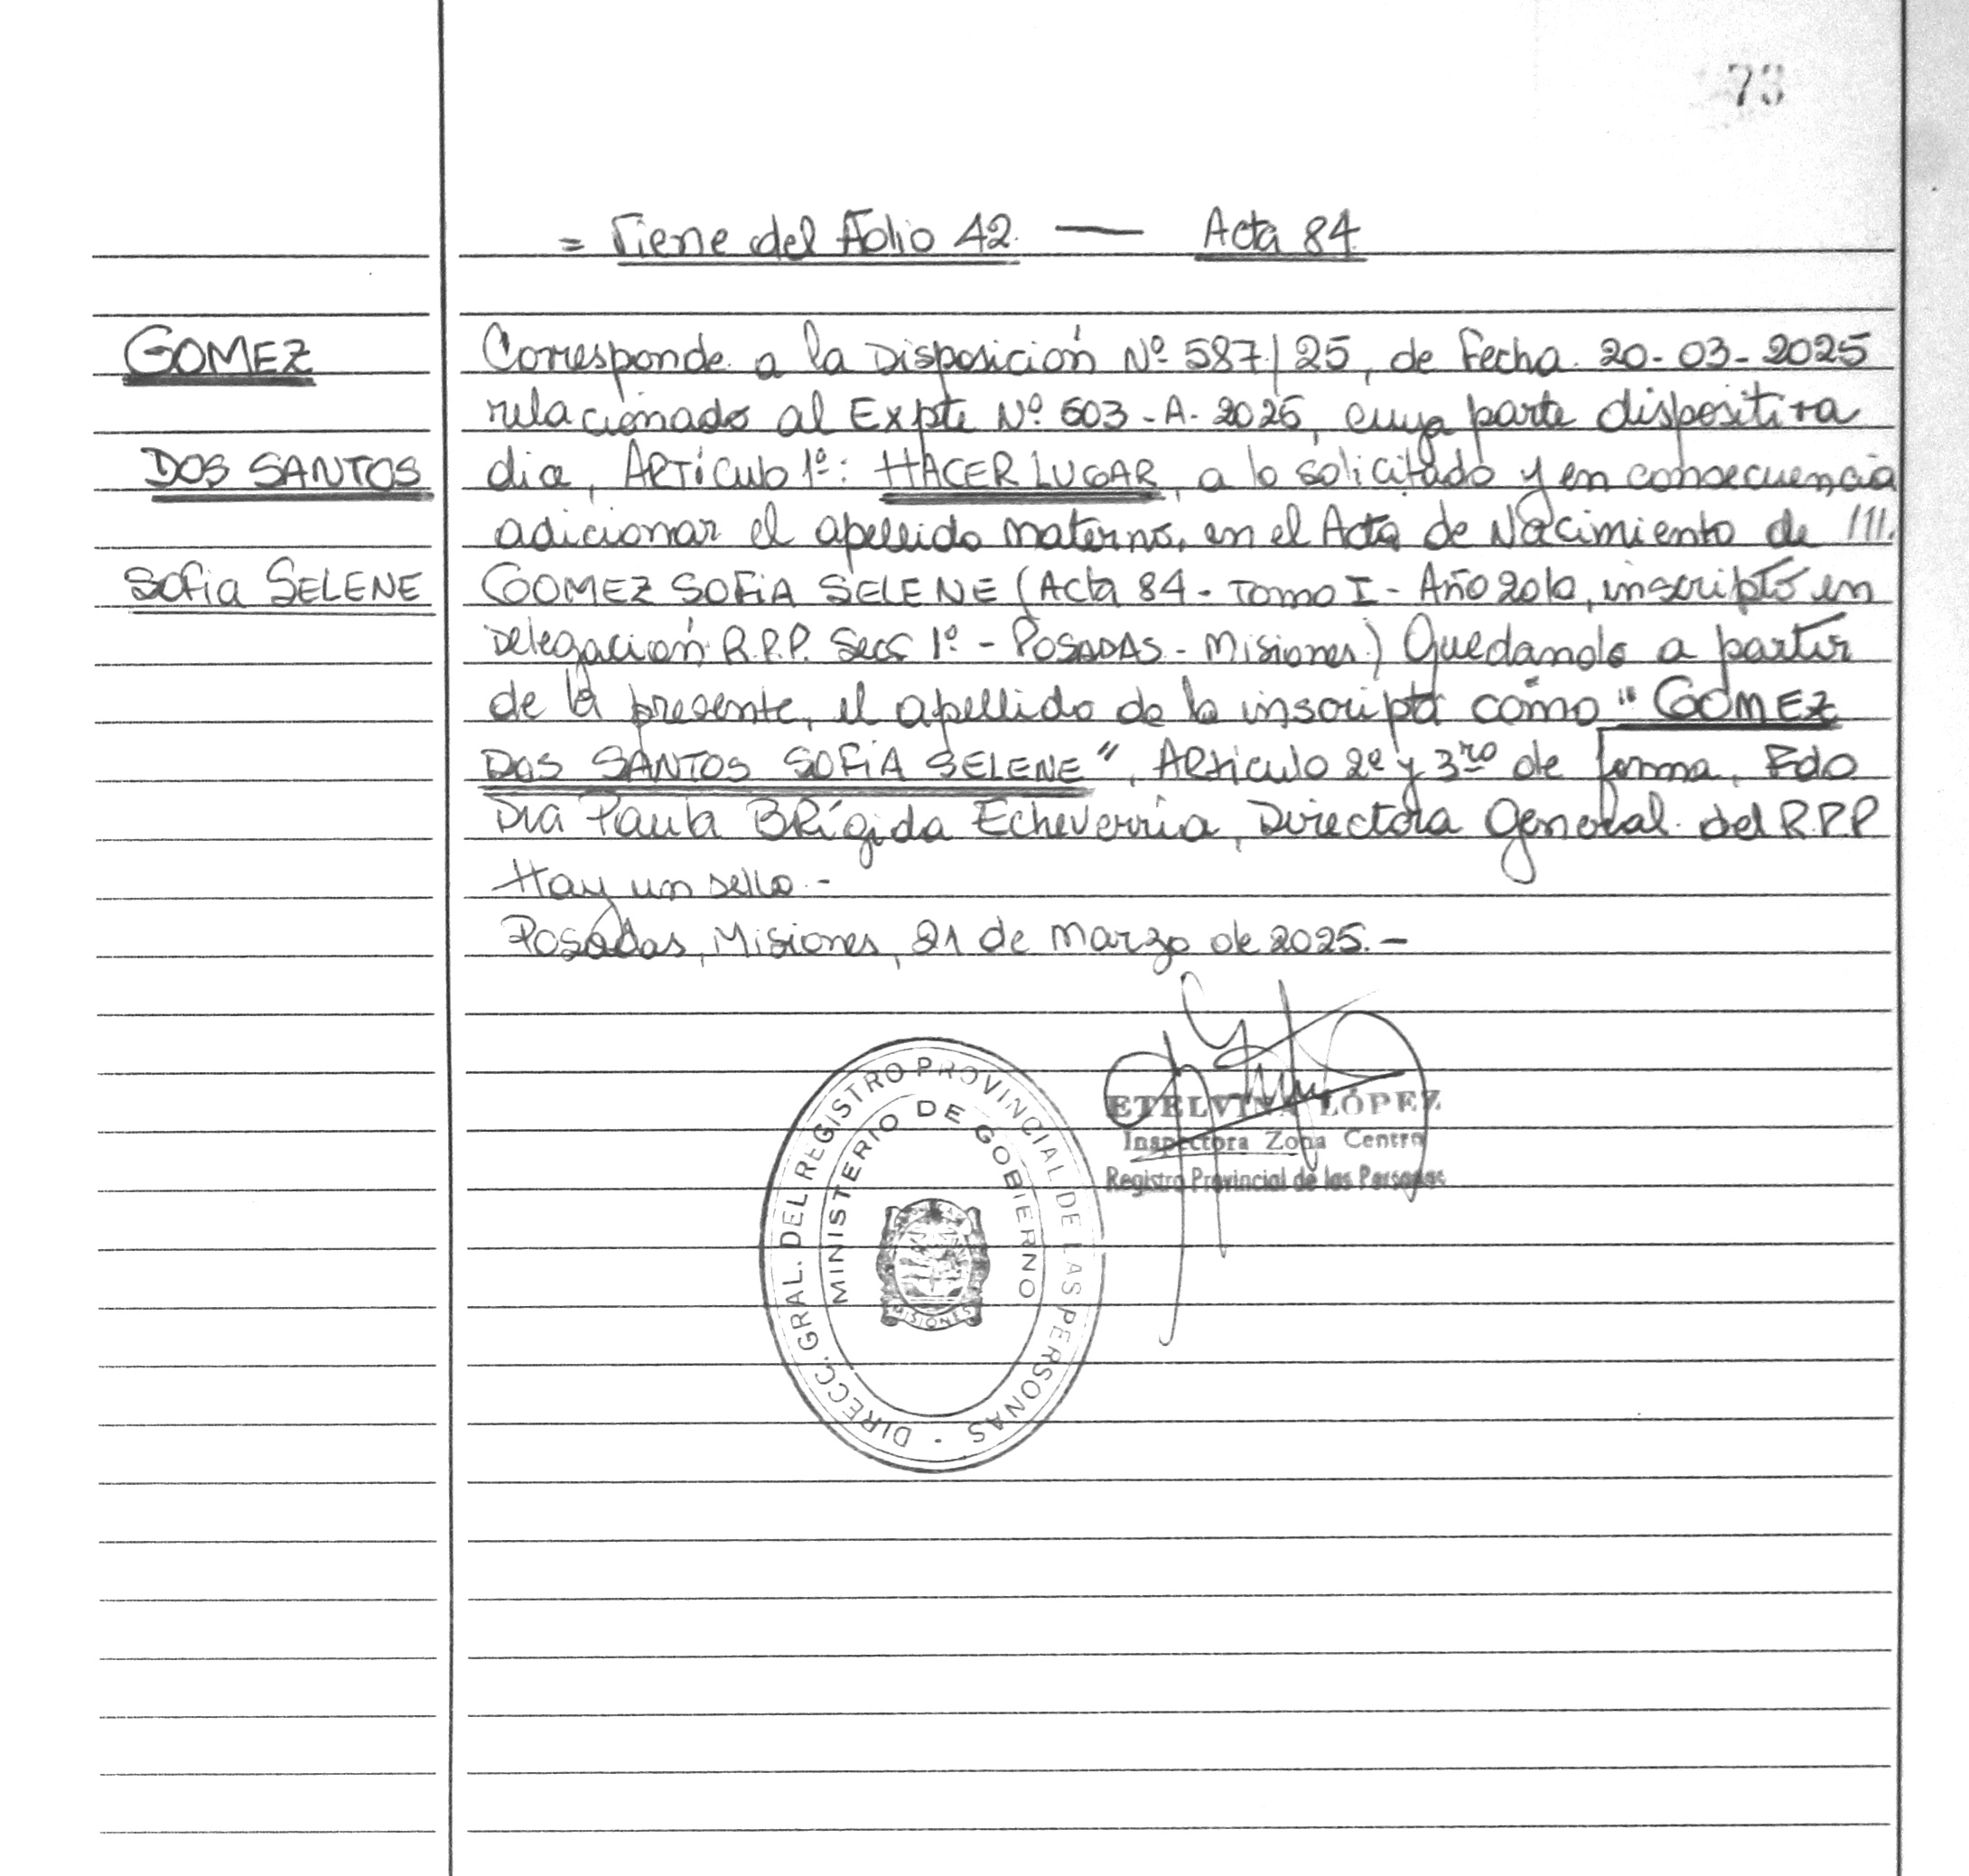 73
= Viene del Folio 42. — Acta 84
GOMEZ
DOS SANTOS
Sofia SELENE
Corresponde a la Disposición Nº 587/25, de Fecha 20-03-2025
relacionado al Expte Nº 603-A-2025, cuya parte dispositiva
dice, Artículo 1º: HACER LUGAR, a lo solicitado y en consecuencia
adicionar el apellido materno, en el Acta de Nacimiento de ///.
GOMEZ SOFIA SELENE (Acta 84 - Tomo I - Año 2010, inscripto en
Delegación R.P.P. Secc 1º - POSADAS - Misiones) Quedando a partir
de la presente, el apellido de la inscripta como "GOMEZ
DOS SANTOS SOFIA SELENE", Articulo 2º y 3ro de forma. Fdo
Dra Paula BRígida Echeverría, Directora General del R.P.P
Hay un sello.-
Posadas, Misiones, 21 de Marzo de 2025.-
ETELVINA LÓPEZ
Inspectora Zona Centro
Registro Provincial de las Personas
DIRECC. GRAL. DEL REGISTRO PROVINCIAL DE LAS PERSONAS -
MINISTERIO DE GOBIERNO
MISIONES